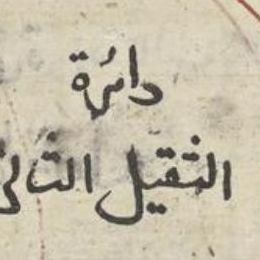 دائرة
الثقيل الثانى